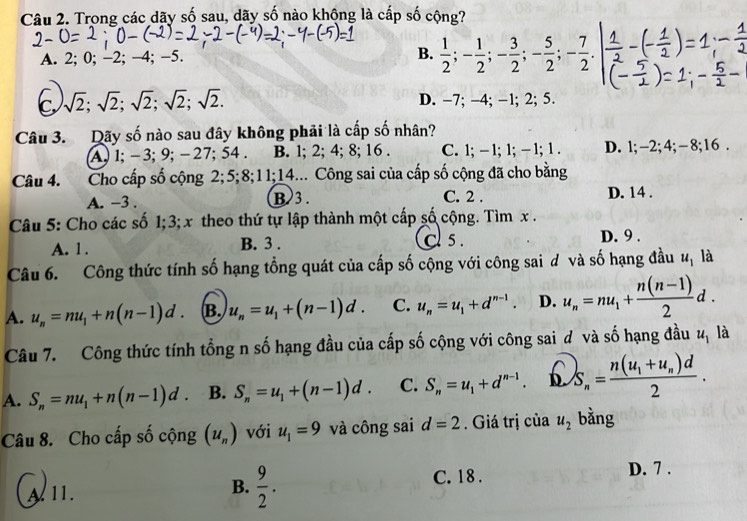 Câu 2. Trong các dãy số sau, dãy số nào không là cấp số cộng?
2-0=2; 0-(-2)=2; -2-(-4)=2; -4-(-5)=1
A. 2; 0; -2; -4; -5. B. 1/2; -1/2; -3/2; -5/2; -7/2. 1/2-(-1/2)=1; -1/2
(-5/2)=1; -5/2-
C. √2; √2; √2; √2; √2. D. -7; -4; -1; 2; 5.
Câu 3. Dãy số nào sau đây không phải là cấp số nhân?
A. 1; -3; 9; -27; 54. B. 1; 2; 4; 8; 16. C. 1; -1; 1; -1; 1. D. 1;-2;4;-8;16.
Câu 4. Cho cấp số cộng 2;5;8;11;14... Công sai của cấp số cộng đã cho bằng
A. -3. B. 3. C. 2. D. 14.
Câu 5: Cho các số 1;3;x theo thứ tự lập thành một cấp số cộng. Tìm x.
A. 1. B. 3. C. 5. D. 9.
Câu 6. Công thức tính số hạng tổng quát của cấp số cộng với công sai d và số hạng đầu u₁ là
A. uₙ = nu₁ + n(n-1)d. B. uₙ = u₁ + (n-1)d. C. uₙ = u₁ + dⁿ⁻¹. D. uₙ = nu₁ + n(n-1)/2 d.
Câu 7. Công thức tính tổng n số hạng đầu của cấp số cộng với công sai d và số hạng đầu u₁ là
A. Sₙ = nu₁ + n(n-1)d. B. Sₙ = u₁ + (n-1)d. C. Sₙ = u₁ + dⁿ⁻¹. D. Sₙ = n(u₁+uₙ)d/2.
Câu 8. Cho cấp số cộng (uₙ) với u₁ = 9 và công sai d = 2. Giá trị của u₂ bằng
A. 11. B. 9/2. C. 18. D. 7.